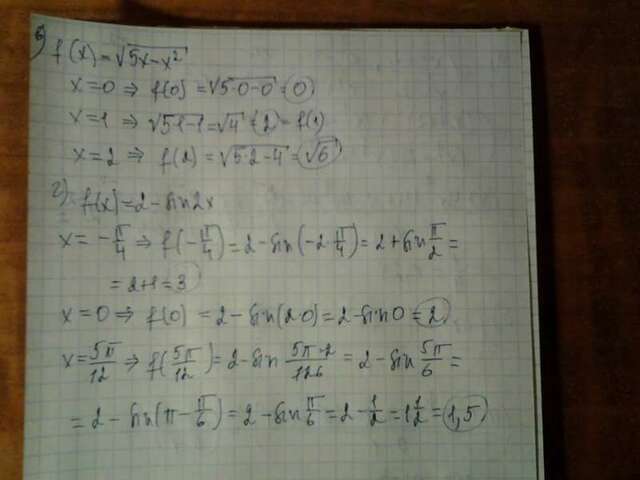 б) f(x) = √5x-x²
x=0 ⇒ f(0) = √5·0-0 = 0
x=1 ⇒ √5·1-1 = √4 = 2 = f(1)
x=2 ⇒ f(2) = √5·2-4 = √6
г) f(x) = 2-sin2x
x = -π/4 ⇒ f(-π/4) = 2-sin(-2·π/4) = 2+sin π/2 =
= 2+1 = 3
x=0 ⇒ f(0) = 2-sin(2·0) = 2-sin0 = 2
x = 5π/12 ⇒ f(5π/12) = 2-sin 5π·2/12 6 = 2-sin 5π/6 =
= 2-sin(π-π/6) = 2-sin π/6 = 2-1/2 = 1 1/2 = 1,5